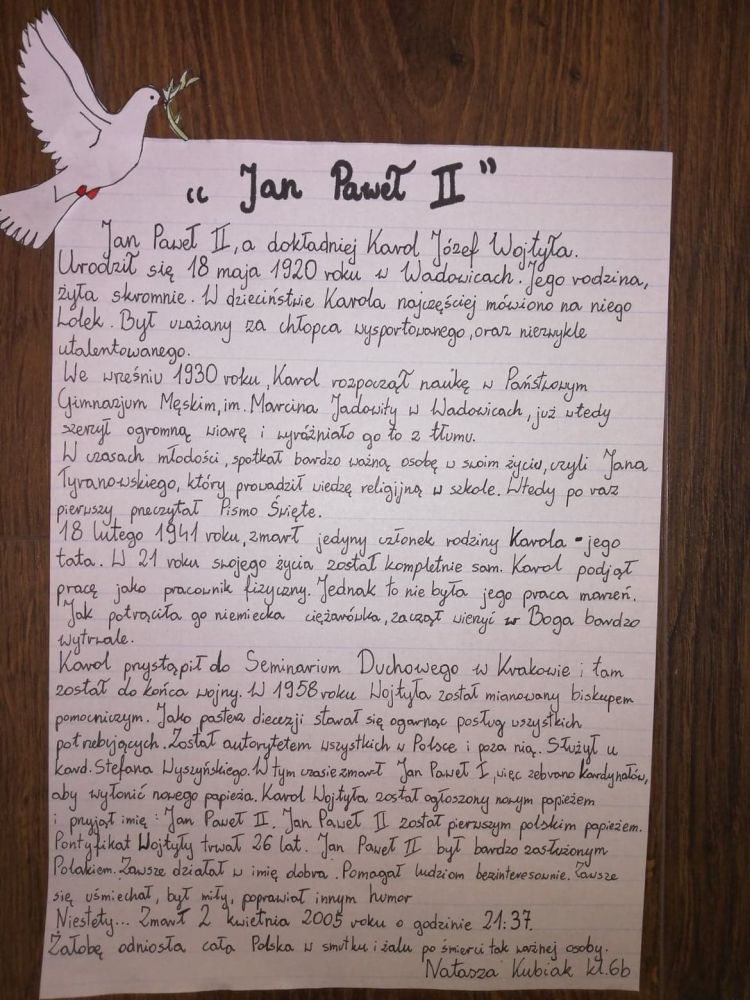 “ Jan Paweł II ”
Jan Paweł II, a dokładniej Karol Józef Wojtyła.
Urodził się 18 maja 1920 roku w Wadowicach. Jego rodzina,
żyła skromnie. W dzieciństwie Karola najczęściej mówiono na niego
Lolek. Był uważany za chłopca wysportowanego, oraz niezwykle
utalentowanego.
We wrześniu 1930 roku, Karol rozpoczął naukę w Państwowym
Gimnazjum Męskim, im. Marcina Jadowity w Wadowicach, już wtedy
szerzył ogromną wiarę i wyróżniało go to z tłumu.
W czasach młodości, spotkał bardzo ważną osobę w swoim życiu, czyli Jana
Tyranowskiego, który prowadził wiedzę religijną w szkole. Wtedy po raz
pierwszy przeczytał Pismo Święte.
18 lutego 1941 roku, zmarł jedyny członek rodziny Karola - jego
tata. W 21 roku swojego życia został kompletnie sam. Karol podjął
pracę jako pracownik fizyczny. Jednak to nie była jego praca marzeń.
Jak potrąciła go niemiecka ciężarówka, zaczął wierzyć w Boga bardzo
wytrwale.
Karol przystąpił do Seminarium Duchowego w Krakowie i tam
został do końca wojny. W 1958 roku Wojtyła został mianowany biskupem
pomocniczym. Jako pasterz diecezji stawał się ogarnąć posługą wszystkich
potrzebujących. Został autorytetem wszystkich w Polsce i poza nią. Służył u
kard. Stefana Wyszyńskiego. W tym czasie zmarł Jan Paweł I, więc zebrano kardynałów,
aby wyłonić nowego papieża. Karol Wojtyła został ogłoszony nowym papieżem
i przyjął imię : Jan Paweł II. Jan Paweł II został pierwszym polskim papieżem.
Pontyfikat Wojtyły trwał 26 lat. Jan Paweł II był bardzo zasłużonym
Polakiem. Zawsze działał w imię dobra. Pomagał ludziom bezinteresownie. Zawsze
się uśmiechał, był miły, poprawiał innym humor
Niestety... Zmarł 2 kwietnia 2005 roku o godzinie 21:37.
Żałobę odniosła cała Polska w smutku i żalu po śmierci tak ważnej osoby.
Natasza Kubiak kl.6b